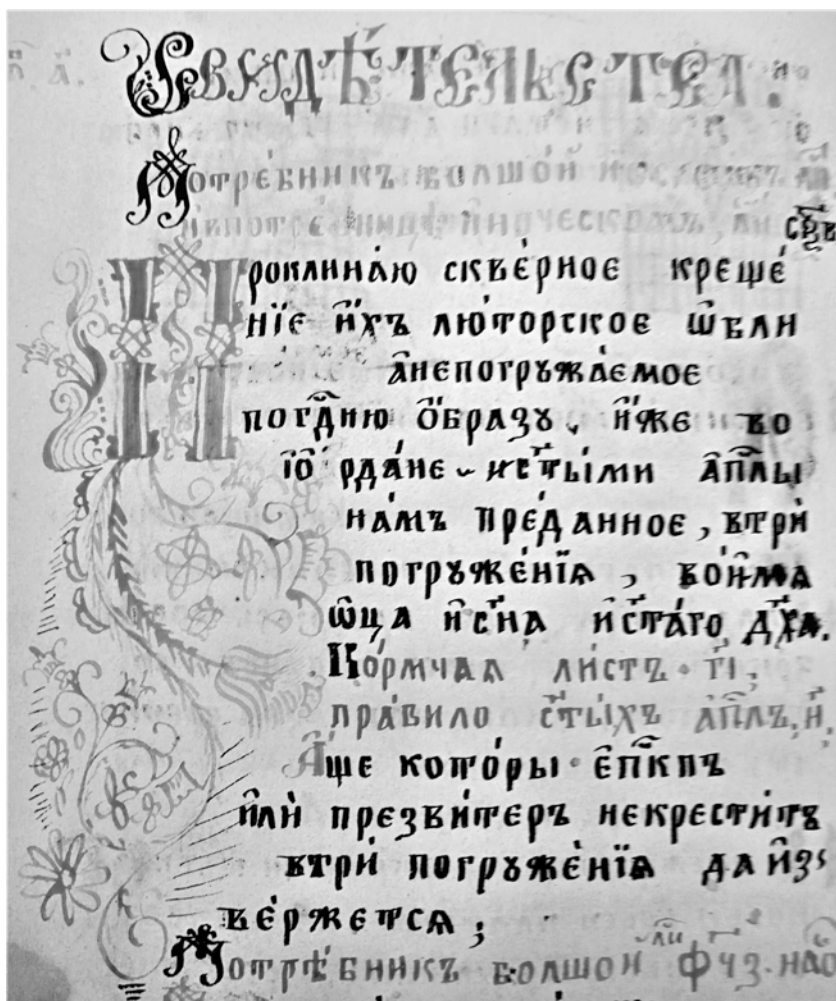 Свидѣ́тельства.
Потре́бникъ болшо́й
Проклина́ю скве́рное креще́
нїе и҆́хъ лю́торское ѡ҆бли
а҆непогрꙋжа́емое
погⷭ҇дню ѻ҆́бразꙋ, и҆́же во
і҆ѻрда́не и҆ст҃ы́ми а҆пⷭ҇лы
на́мъ пре́данное, втрѝ
погрꙋже́нїѧ, вои҆́мѧ
ѻ҆ц҃а и҆сн҃а и҆ст҃а́го дх҃а.
Ко́рмчаѧ ли́стъ · г҃і,
пра́вило ст҃ы́хъ а҆пⷭ҇лъ, н҃,
А҆́ще кото́ры є҆пⷭ҇кпъ
и҆лѝ презви́теръ некрести́тъ
втрѝ погрꙋже́нїѧ да и҆з̾
ве́ржетсѧ;
Потрѣ́бникъ болшои